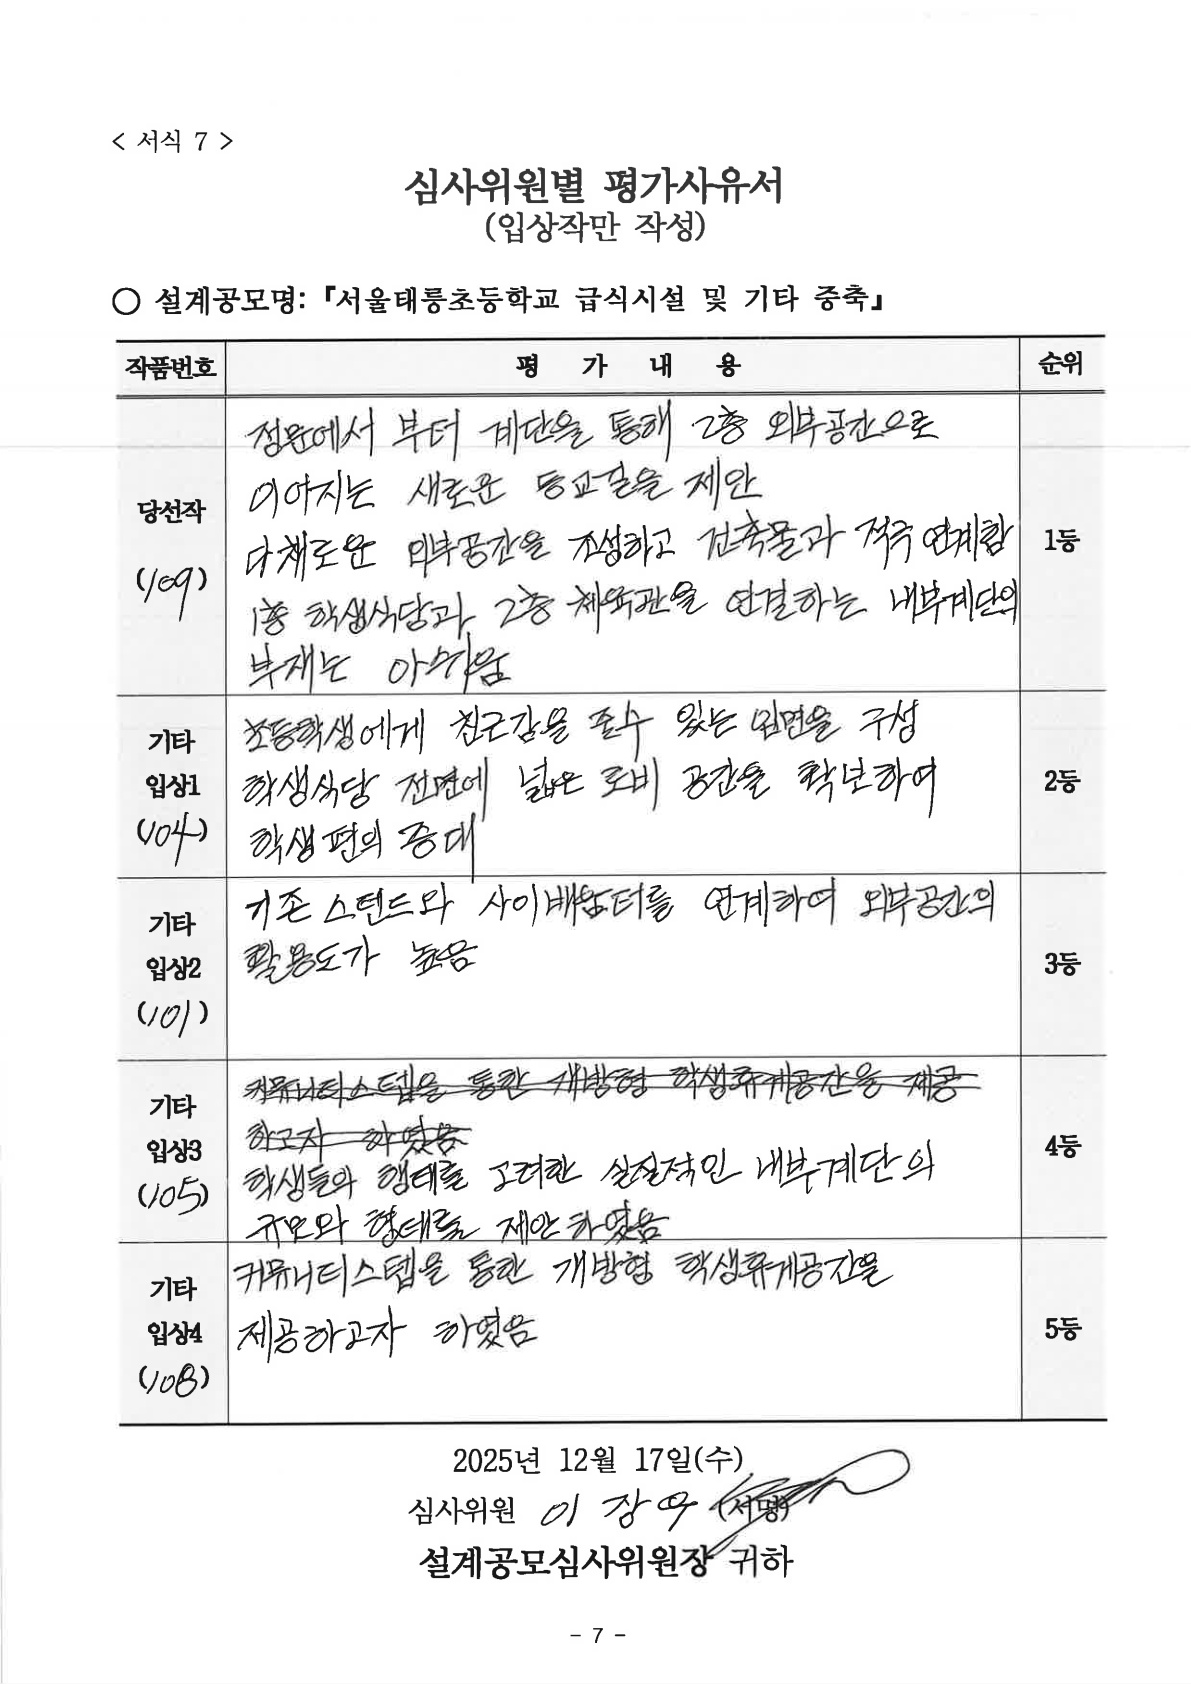 < 서식 7 >
심사위원별 평가사유서
(입상작만 작성)
○ 설계공모명: 『서울태릉초등학교 급식시설 및 기타 증축』
작품번호 평 가 내 용 순위
당선작
(109)
정문에서 부터 계단을 통해 2층 외부공간으로
이어지는 새로운 등교길을 제안
다채로운 외부공간을 조성하고 건축물과 적극 연계함
1층 학생식당과 2층 체육관을 연결하는 내부계단의
부재는 아쉬움
1등
기타
입상1
(104)
초등학생에게 친근감을 줄수 있는 입면을 구성
학생식당 전면에 넓은 로비 공간을 확보하여
학생편의 증대
2등
기타
입상2
(101)
기존 스탠드와 사이배움터를 연계하여 외부공간의
활용도가 높음
3등
기타
입상3
(105)
커뮤니티스텝을 통한 개방형 학생휴게공간을 제공
하고자 하였음
학생들의 행태를 고려한 실질적인 내부계단의
규모와 형태를 제안하였음
4등
기타
입상4
(108)
커뮤니티스텝을 통한 개방형 학생휴게공간을
제공하고자 하였음
5등
2025년 12월 17일(수)
심사위원 이 장 우 (서명)
설계공모심사위원장 귀하
- 7 -